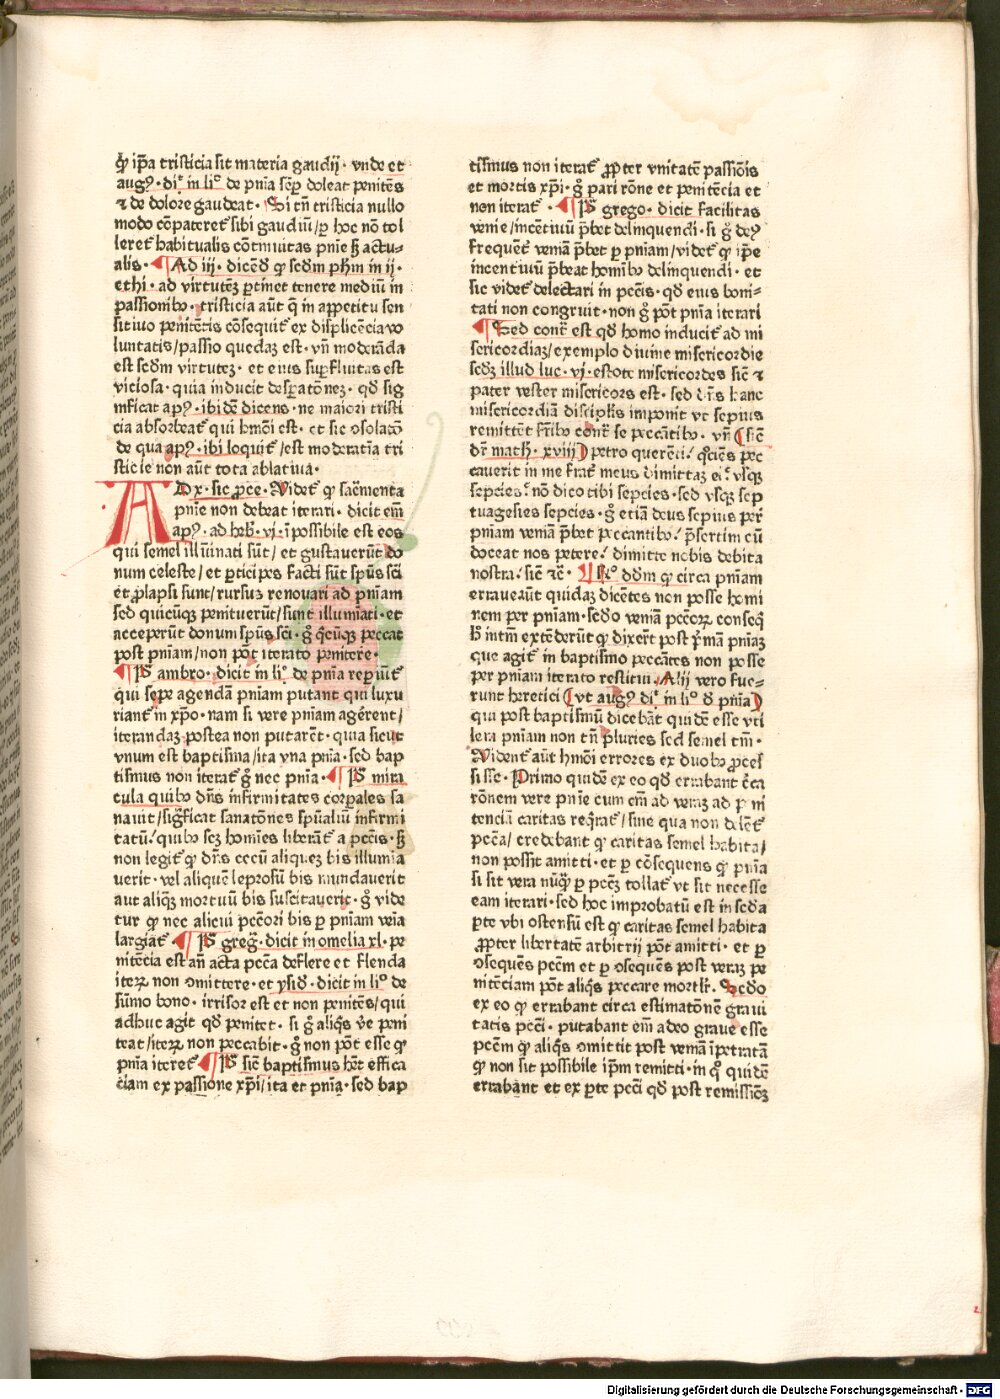 ꝙ ip̄a tristicia sit materia gaudij · vnde et
augꝰ · diͨ in liͦ de pn̄ia semꝑ doleat penitēs
⁊ de dolore gaudeat · Si tn̄ tristicia nullo
modo cōpateret̄ sibi gaudiū / ꝑ hoc nō tol
leret̄ habitualis cōtinuitas pnīe sꝫ actu⸗
alis · Ad iij · dicēdū ꝙ scd̄m ph̄m in ij ·
ethi · ad virtutēz ꝑtinet tenere mediū in
passionibꝰ · tristicia aūt q̄ in appetitu sen
sitiuo penitētis cōsequit̄ ex displicēcia vo
luntatis / passio quedaz est · vn̄ moderāda
est scd̄m virtutēz · et eius suꝑfluitas est
viciosa · quia inducit despatōnez · qd̄ sig
nificat apꝰ · ibidē dicens · ne maiori tristi
cia absorbeat̄ qui hmōi est · et sic ↄsolatō
de qua apꝰ · ibi loquit̄ / est moderatīa tri
sticie non aūt tota ablatiua ·
AD x · sic ꝓce · Videt̄ ꝙ sac̄menta
pnīe non debeat iterari · dicit em̄
apꝰ · ad heb̄ · vi · īpossibile est eos
qui semel illūinati sūt / et gustauerūt do
num celeste / et ꝑticipes facti sūt spūs sc̄i
et ꝓlapsi sunt / rursus renouari ad pn̄iam
sed quicūqꝫ penituerūt / sunt illumīati · et
acceperūt donum spūs sc̄i · g̊ q̄cūqꝫ peccat
post pn̄iam / non pōt iterato penitere ·
Pꝰ ambro · dicit in liͦ de pn̄ia reꝑiūt̄
qui sepe agendā pn̄iam putant qui luxu
riant̄ in xp̄o · nam si vere pn̄iam agerent /
iterandaz postea non putarēt · quia sicut
vnum est baptisma / ita vna pn̄ia · sed bap
tismus non iterat̄ g̊ nec pn̄ia · Pꝰ mira
cula quibꝰ dn̄s infirmitates corꝑales sa
nauit / sig̓ficat̄ sanatōnes spūaliū infirmi
tatū · quibꝰ scz homīes liberāt̄ a pcc̄is · sꝫ
non legit̄ ꝙ dn̄s cecū aliquez bis illumia
uerit · vel aliquē leprosū bis mundauerit
aut aliqz mortuū bis suscitauerit · g̊ vide
tur ꝙ nec alicui pcc̄ori bis ꝑ pn̄iam veīa
largiat̄ Pꝰ greg̓ · dicit in omelia xl · pe
nitēcia est añ acta pcc̄a deflere et flenda
iteꝝ non ↄmittere · et ysid̓ · dicit in liͦ de
sūmo bono · irrisor est et non penitēs / qui
adhuc agit qd̄ penitet · si g̊ aliq̓s ve̓ peni
teat / iteꝝ non peccabit · g̊ non pōt esse ꝙ
pn̄ia iteret̄ Pꝰ sic̄ baptismus hēt effica
ciam ex passione xp̄i / ita et pn̄ia · sed bap
tismus non iterat̄ ꝓpter vnitatē passiōis
et mortis xp̄i · g̊ pari rōne et penitēcia et
non iterat̄ · Pꝰ grego · dicit facilitas
venie / incētiuū p̄bet delinquendi · si g̊ deꝰ
frequēt̓ veniā p̄bet ꝑ pn̄iam / videt̄ ꝙ ip̄e
incentiuū p̄beat homībꝰ delinquendi · et
sic videt̄ delectari in pcc̄is · qd̄ eius boni⸗
tati non congruit · non g̊ pōt pn̄ia iterari
Sed contͣ est qd̄ homo inducit̄ ad mi
sericordiaz / exemplo diuine misericordie
scd̄z illud luc · vj · estote misericordes sic̄ ⁊
pater vester misericors est · sed dn̄s hanc
misericordiā discipl̓is imponit vt sepius
remittēt fr̄ibꝰ contͣ se peccātibꝰ · vn̄ (sic̄
dr̄ math · xviij) petro querēti · q̓ciens pec
cauerit in me frat̓ meus dimittaz ei · vsqꝫ
sepcies · nō dico tibi sepcies · sed vsqꝫ sep
tuagesies sepcies · g̊ etiā deus sepius per
pn̄iam veniā p̄bet peccantibꝰ · p̄sertim cū
doceat nos petere · dimitte nobis debita
nostra · sic̄ ⁊c̄ · Rͦ dd̄m ꝙ circa pn̄iam
erraueāt quidaz dicētes non posse homi
nem per pn̄iam · scd̄o veniā pcc̄oꝝ conseq̓
hͦ intm̄ extēderūt ꝙ dixert̄ post p̓mā pn̄iaz
que agit̄ in baptismo peccātes non posse
per pn̄iam iterato restitui · Alij vero fue⸗
runt heretici (vt augꝰ diͨ in liͦ d̓ pn̄ia)
qui post baptismū dicebāt quidē esse vti
lem pn̄iam non tn̄ pluries sed semel tm̄ ·
Vident̄ aūt hmōi errores ex duobꝰ ꝓces
sisse · Primo quidē ex eo qd̄ errabant circa
rōnem vere pnīe cum em̄ ad veraz ad peni
tenciā caritas reqͥrat̄ / sine qua non delēt̄
pcc̄a / credebant ꝙ caritas semel habita /
non possit amitti · et ꝑ cōsequens ꝙ pn̄ia
si sit vera nūq̄ ꝑ pcc̄z tollat̄ vt sit necesse
eam iterari · sed hoc improbatū est in scd̄a
ꝑte vbi ostensū est ꝙ caritas semel habita
ꝓpter libertatē arbitrij pōt amitti · et ꝑ
ↄsequēs pcc̄m et ꝑ ↄsequēs post veraz pe
nitēciam pōt aliq̓s peccare mortlr̓ · Scd̄o
ex eo ꝙ errabant circa estimatōnē graui
tatis pcc̄i · putabant em̄ adeo graue esse
pcc̄m ꝙ aliq̓s ↄmittit post veniā īpetratā
ꝙ non sit possibile ip̄m remitti · in qͦ quidē
errabant et ex ꝑte pcc̄i qd̄ post remissiōꝫ
Digitalisierung gefördert durch die Deutsche Forschungsgemeinschaft - DFG